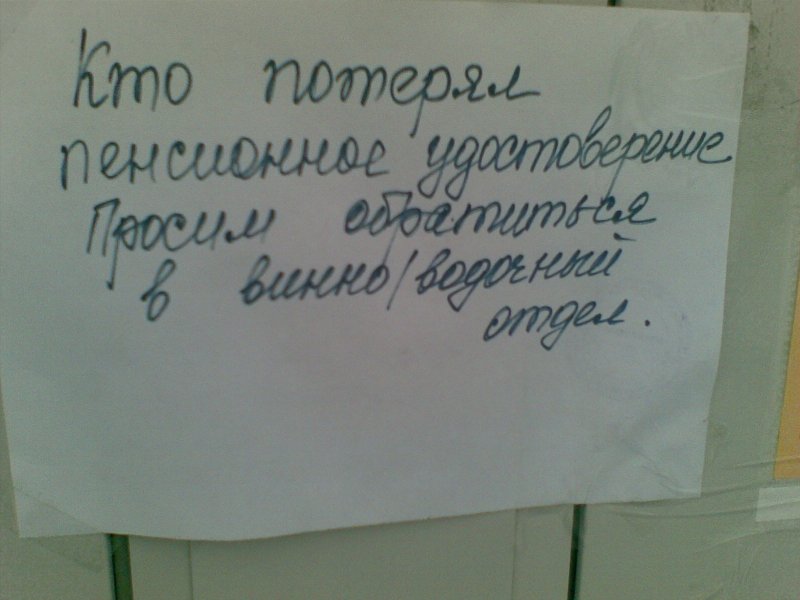 Кто потерял
пенсионное удостоверение
Просим обратиться
в винно/водочный
отдел.